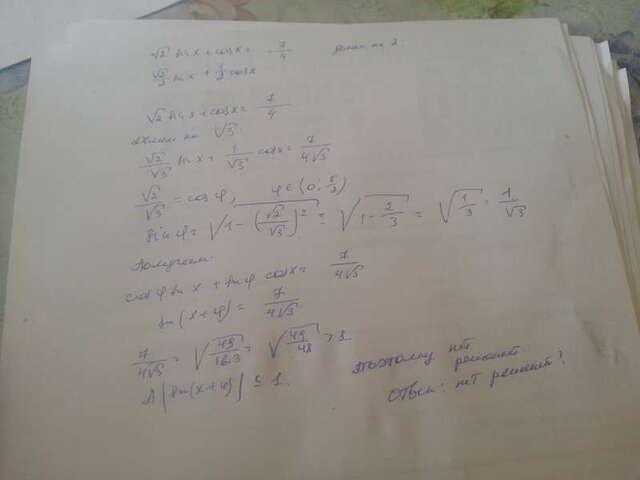 √2 sin x + cos x = 7/4 делим на 2
√2/2 sin x + 1/2 cos x
√2 sin x + cos x = 7/4
делим на √3
√2/√3 sin x + 1/√3 cos x = 7/4√3
√2/√3 = cos φ, φ ∈ (0,
sin φ = √(1 - (√2/√3)²) = √(1 - 2/3) = √(1/3) = 1/√3
Получаем:
cos φ sin x + sin φ cos x = 7/4√3
sin(x + φ) = 7/4√3
7/4√3 = √(49/16·3) = √(49/48) > 1
А |sin(x + φ)| ≤ 1.
поэтому нет
решений.
Ответ: нет решений!